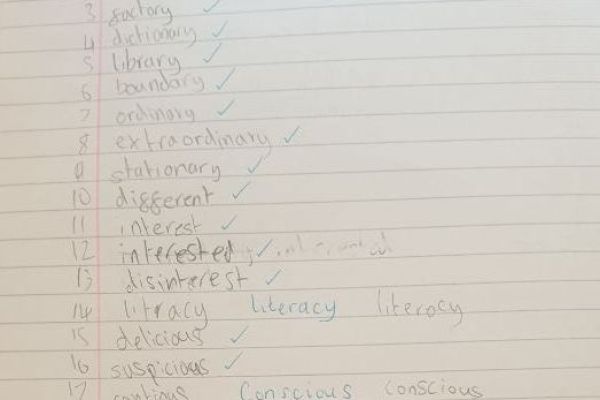 3 factory ✓
4 dictionary ✓
5 library ✓
6 boundary ✓
7 ordinary ✓
8 extraordinary ✓
9 stationary ✓
10 different ✓
11 interest ✓
12 interested ✓
13 disinterest ✓
14 litracy literacy literocy
15 delicious ✓
16 suspicious ✓
17 Conscious conscious